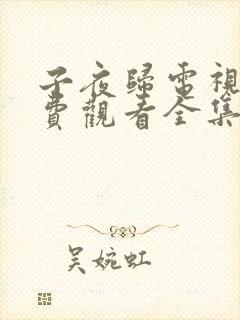 子夜歸電視
費觀看全集
吳婉虹